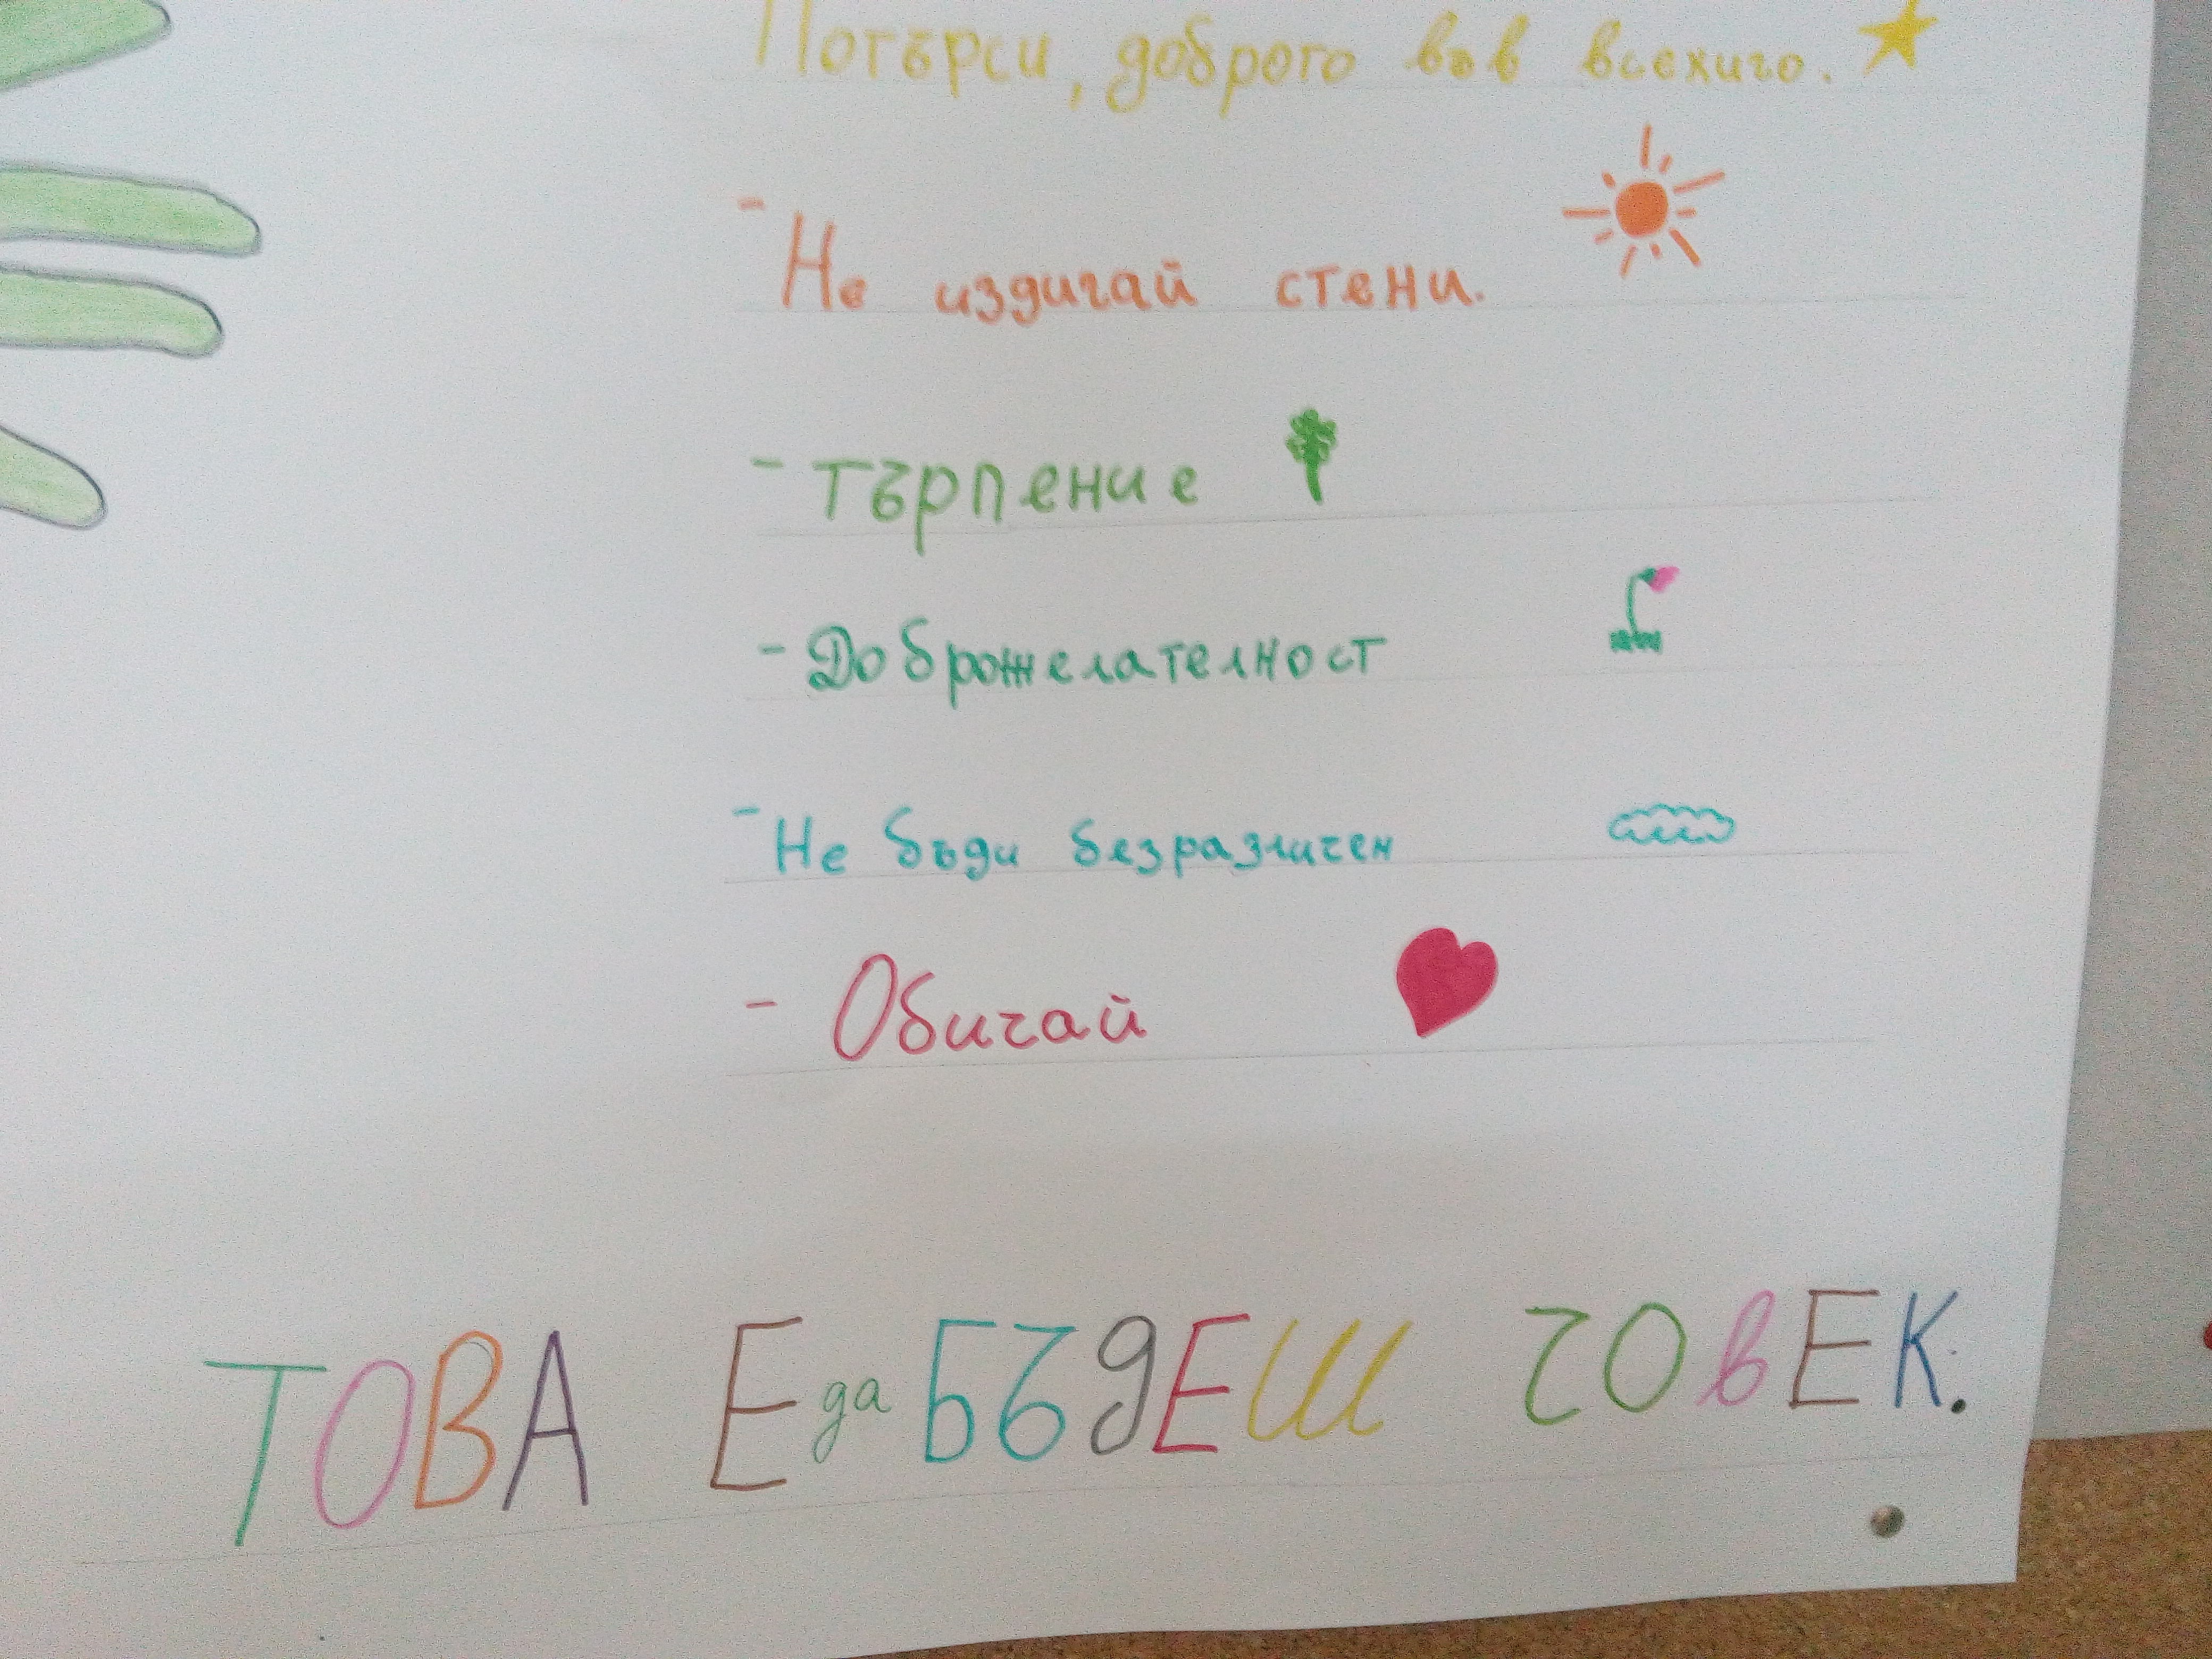 Потърси, доброто във всекиго.
- Не издигай стени.
- Търпение
- Доброжелателност
- Не бъди безразличен
- Обичай
ТОВА Е да БЪДЕШ ЧОВЕК.